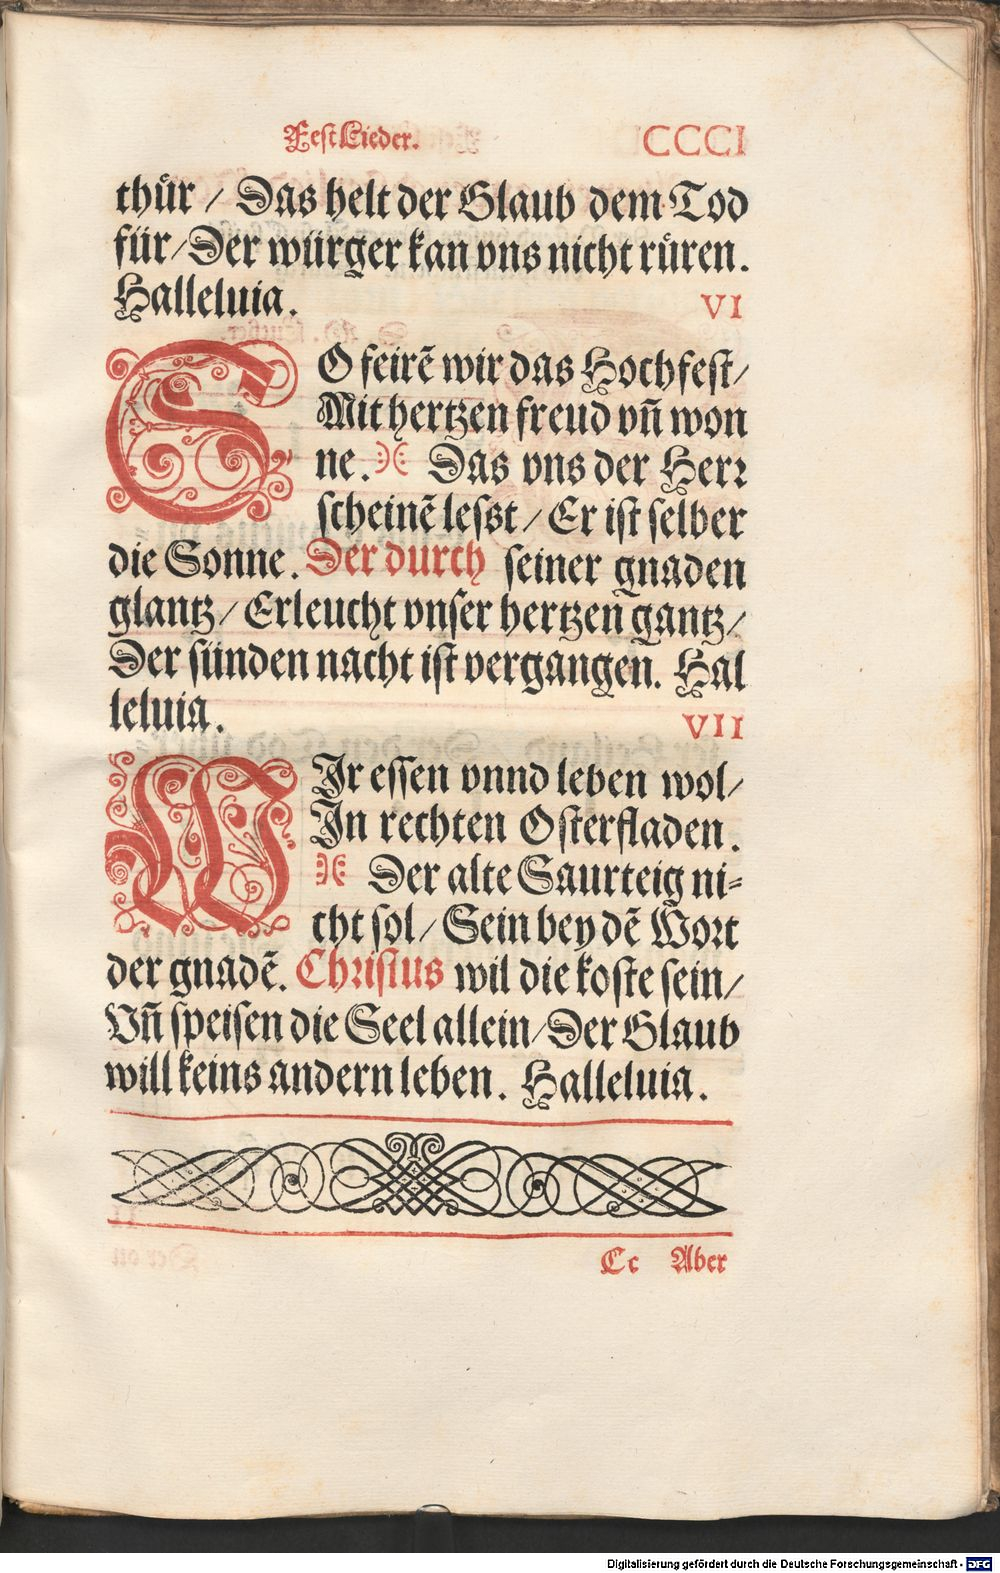 FestLieder. CCCI
thür / Das helt der Glaub dem Tod
für / Der würger kan vns nicht rüren.
Halleluia. VI
SO feirẽ wir das Hochfest /
Mit hertzen freud vñ won
ne. Das vns der Herr
scheinẽ lesst / Er ist selber
die Sonne. Der durch seiner gnaden
glantz / Erleucht vnser hertzen gantz /
Der sünden nacht ist vergangen. Hal
leluia. VII
WIr essen vnnd leben wol /
In rechten Osterfladen.
Der alte Saurteig ni-
cht sol / Sein bey dẽ Wort
der gnadẽ. Christus wil die koste sein /
Vñ speisen die Seel allein / Der Glaub
will keins andern leben. Halleluia.
Cc Aber
Digitalisierung gefördert durch die Deutsche Forschungsgemeinschaft - DFG